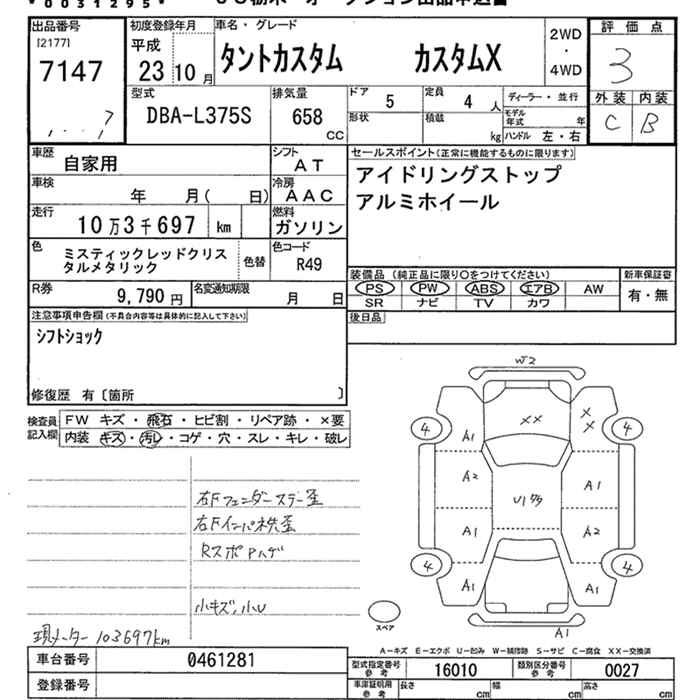 *0031295*
出品番号
[2177]
7147
初度登録年月
平成
23 10 月
車名・グレード
タントカスタム カスタムX
2WD
・
4WD
評価点
3
外装 内装
C B
型式
DBA-L375S
排気量
658
CC
ドア
5
定員
4 人
形状
積載
kg
ディーラー・並行
モデル年式 年
ハンドル 左・右
車歴
自家用
シフト
AT
車検
年 月( 日)
冷房
AAC
走行
10万3千697 km
燃料
ガソリン
色
ミスティックレッドクリスタルメタリック
色替
色コード
R49
R券
9,790 円
名変通知期限
月 日
セールスポイント(正常に機能するものに限ります)
アイドリングストップ
アルミホイール
装備品 (純正品に限り○をつけてください)
PS PW ABS エアB AW
SR ナビ TV カワ
新車保証書
有・無
後日品
注意事項申告欄(不具合内容等は具体的に記入して下さい)
シフトショック
修復歴 有〔箇所 〕
検査員記入欄
FW キズ・飛石・ヒビ割・リペア跡・×要
内装 キズ・汚レ・コゲ・穴・スレ・キレ・破レ
右Fフェンダーステー歪
右Fインパネ先歪
Rスポ Pハゲ
小キズ、小U
現メーター 103697km
W2
××
××
4
4
A1
A2
A1
U1
A1
A2
A1
4
4
A1
A1
A1
スペア
A-キズ E-エクボ U-凹み W-補修跡 S-サビ C-腐食 XX-交換済
車台番号
0461281
登録番号
型式指定番号
参考
16010
類別区分番号
参考
0027
車庫証明用
参考
長さ cm
幅 cm
高さ cm